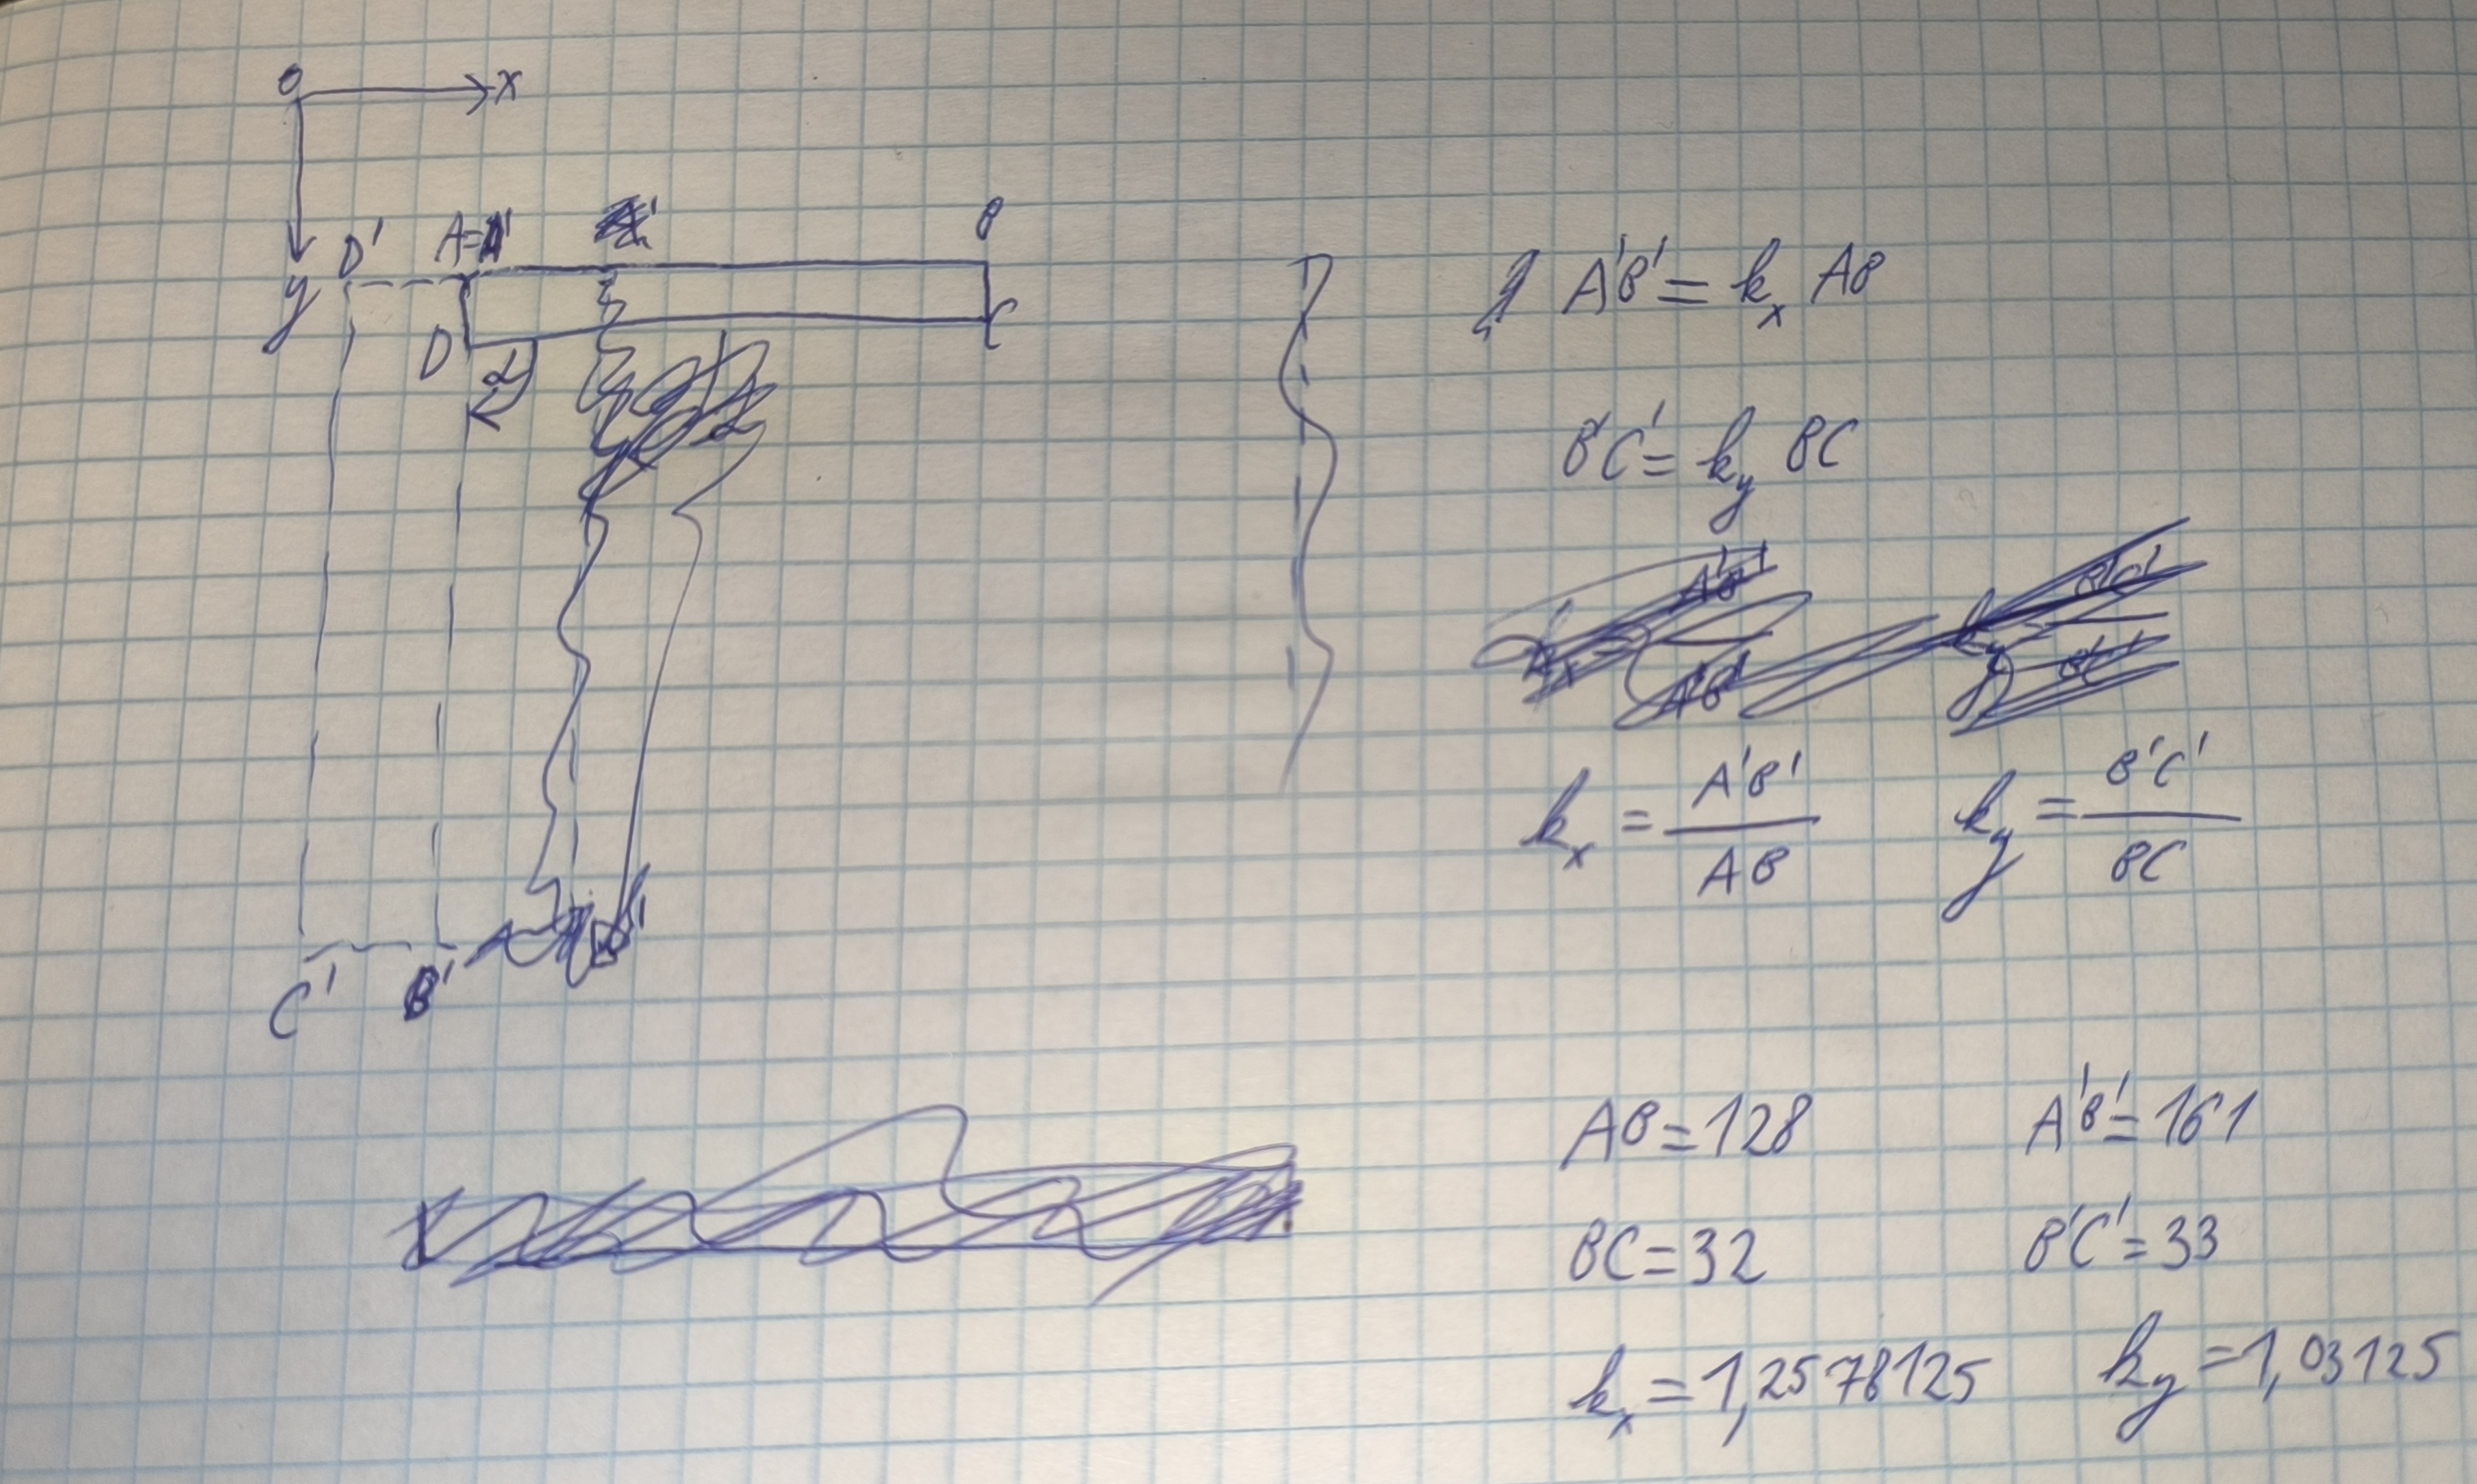 O x
y D' A=A' B
D C
α
C' B'
A'B' = kₓ AB
B'C' = k_y BC
kₓ = A'B' / AB k_y = B'C' / BC
AB = 128 A'B' = 161
BC = 32 B'C' = 33
kₓ = 1,2578125 k_y = 1,03125